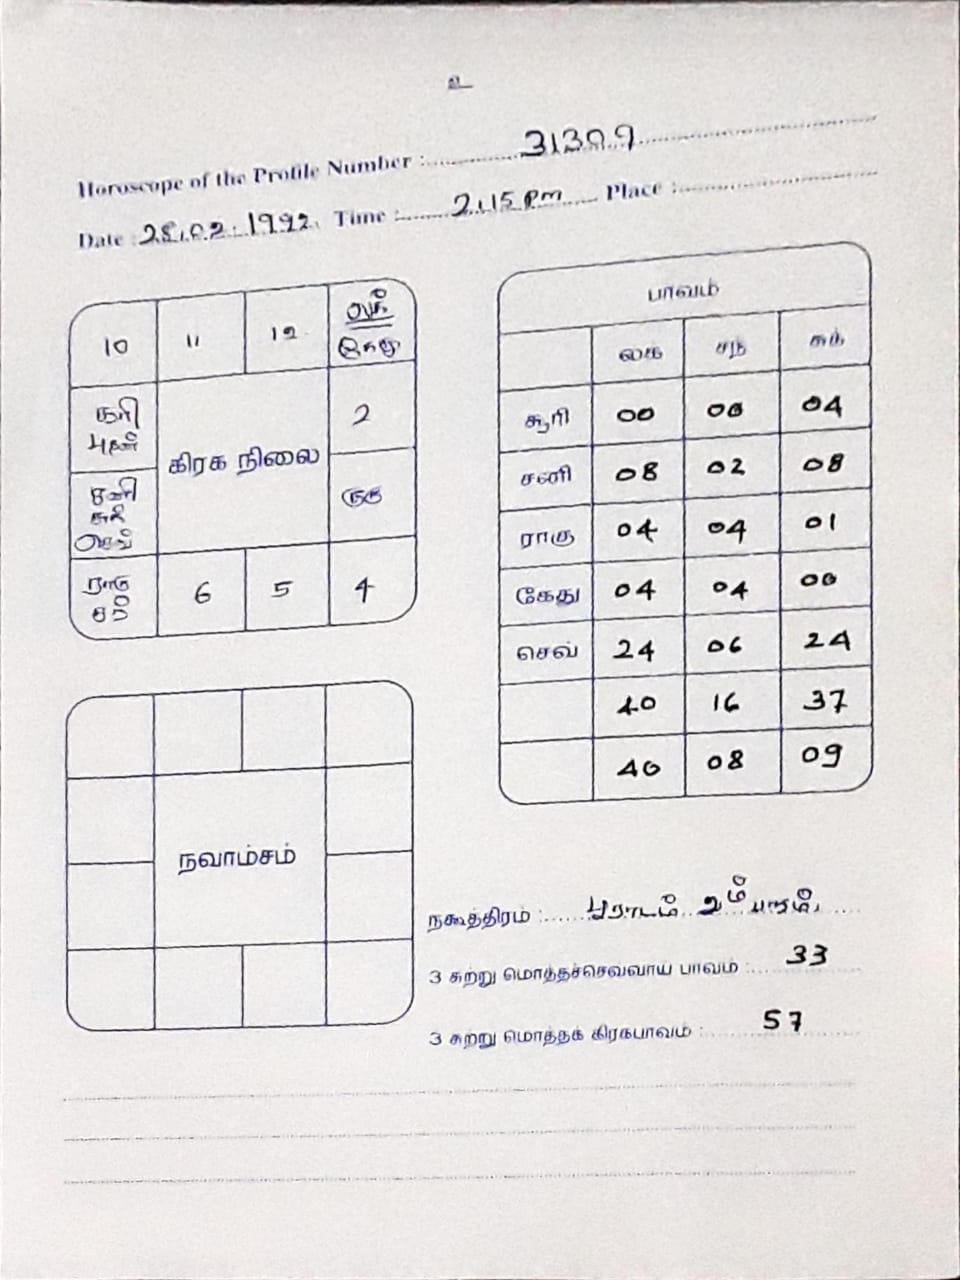 உ
Horoscope of the Profile Number : 31309
Date : 28.02.1992. Time : 2.15 pm Place :
10 11 12 லக் கேது
சூரி புதன் கிரக நிலை 2
சனி சுக் செவ் குரு
ராகு சந் 6 5 4
பாவம்
லக் சந் சுக்
சூரி 00 00 04
சனி 08 02 08
ராகு 04 04 01
கேது 04 04 00
செவ் 24 06 24
40 16 37
40 08 09
நவாம்சம்
நக்ஷத்திரம் : பூராடம் 2ம் பாதம்.
3 சுற்று மொத்தச்செவ்வாய் பாவம் : 33
3 சுற்று மொத்தக் கிரகபாவம் : 57